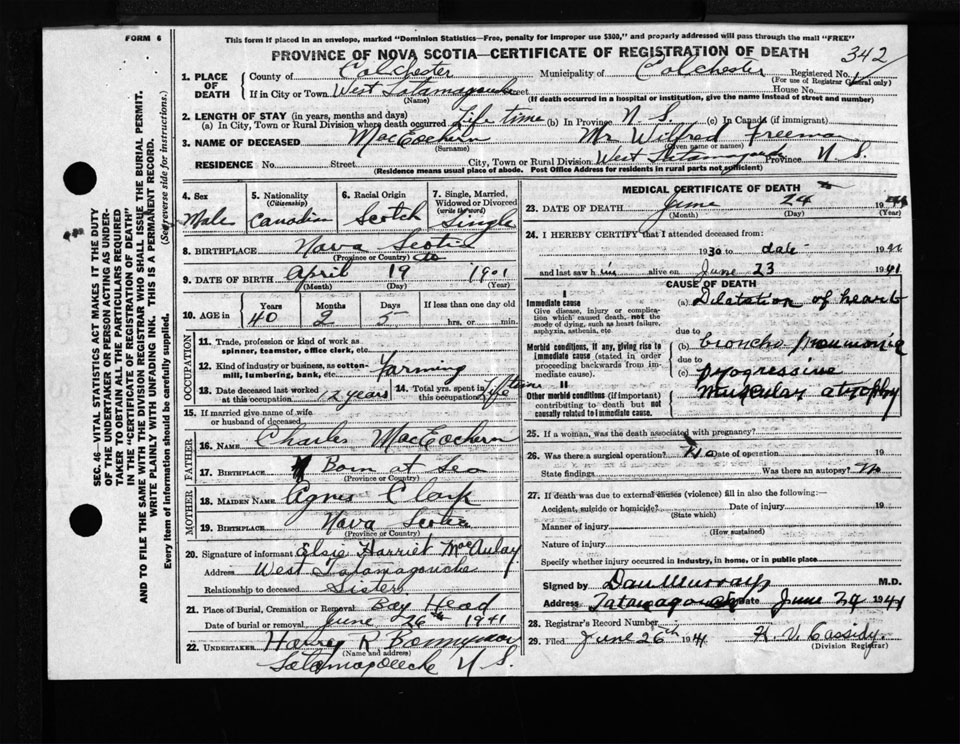 FORM 6
This form if placed in an envelope, marked "Dominion Statistics—Free, penalty for improper use $300," and properly addressed will pass through the mail "FREE"
PROVINCE OF NOVA SCOTIA—CERTIFICATE OF REGISTRATION OF DEATH
342
1. PLACE OF DEATH
County of Colchester Municipality of Colchester Registered No.
(For use of Registrar General only)
If in City or Town West Tatamagouche Street House No.
(Name) (If death occurred in a hospital or institution, give the name instead of street and number)
2. LENGTH OF STAY (in years, months and days)
(a) In City, Town or Rural Division where death occurred Life time (b) In Province N S (c) In Canada (if immigrant)
3. NAME OF DECEASED MacEachern Mr Wilfred Freeman
(Surname) (Given name or names)
RESIDENCE No. Street City, Town or Rural Division West Tatamagouche Province N. S.
(Residence means usual place of abode. Post Office Address for residents in rural parts not sufficient)
4. Sex Male
5. Nationality (Citizenship) Canadian
6. Racial Origin Scotch
7. Single, Married, Widowed or Divorced (write the word) Single
8. BIRTHPLACE Nova Scotia
(Province or Country)
9. DATE OF BIRTH April 19 1901
(Month) (Day) (Year)
10. AGE in Years 40 Months 2 Days 5 If less than one day old hrs. or min.
OCCUPATION
11. Trade, profession or kind of work as spinner, teamster, office clerk, etc.
12. Kind of industry or business, as cotton-mill, lumbering, bank, etc. Farming
13. Date deceased last worked at this occupation 12 years
14. Total yrs. spent in this occupation Life time
15. If married give name of wife or husband of deceased
FATHER
16. NAME Charles MacEachern
17. BIRTHPLACE Born at Sea
(Province or Country)
MOTHER
18. MAIDEN NAME Agnes Clark
19. BIRTHPLACE Nova Scotia
(Province or Country)
20. Signature of informant Elsie Harriet McAulay
Address West Tatamagouche
Relationship to deceased Sister
21. Place of Burial, Cremation or Removal Bay Head
Date of burial or removal June 26th 1941
22. UNDERTAKER Harry R
(Name and address)
Tatamagouche N. S.
MEDICAL CERTIFICATE OF DEATH
23. DATE OF DEATH June 24 19
(Month) (Day) (Year)
24. I HEREBY CERTIFY that I attended deceased from:
1930 to date 19
and last saw him alive on June 23 1941
CAUSE OF DEATH
I
Immediate cause
Give disease, injury or complication which caused death, not the mode of dying, such as heart failure, asphyxia, asthenia, etc.
(a) Dilatation of heart
due to
Morbid conditions, if any, giving rise to immediate cause (stated in order proceeding backwards from immediate cause).
(b) broncho pneumonia
due to
(c) progressive
II
Other morbid conditions (if important) contributing to death but not causally related to immediate cause.
muscular atrophy
25. If a woman, was the death associated with pregnancy?
26. Was there a surgical operation? No Date of operation 19
State findings Was there an autopsy? No
27. If death was due to external causes (violence) fill in also the following:—
Accident, suicide or homicide? Date of injury 19
(State which)
Manner of injury
(How sustained)
Nature of injury
Specify whether injury occurred in industry, in home, or in public place
Signed by Dan Murray M.D.
Address Tatamagouche Date June 24 1941
28. Registrar's Record Number
29. Filed June 26th 1941 H. V. Cassidy.
(Division Registrar)
SEC. 46—VITAL STATISTICS ACT MAKES IT THE DUTY
OF THE UNDERTAKER OR PERSON ACTING AS UNDER-
TAKER TO OBTAIN ALL THE PARTICULARS REQUIRED
IN THE "CERTIFICATE OF REGISTRATION OF DEATH"
AND TO FILE THE SAME WITH THE DIVISION REGISTRAR WHO SHALL ISSUE THE BURIAL PERMIT.
WRITE PLAINLY WITH UNFADING INK. THIS IS A PERMANENT RECORD.
Every item of information should be carefully supplied. (See reverse side for instructions.)